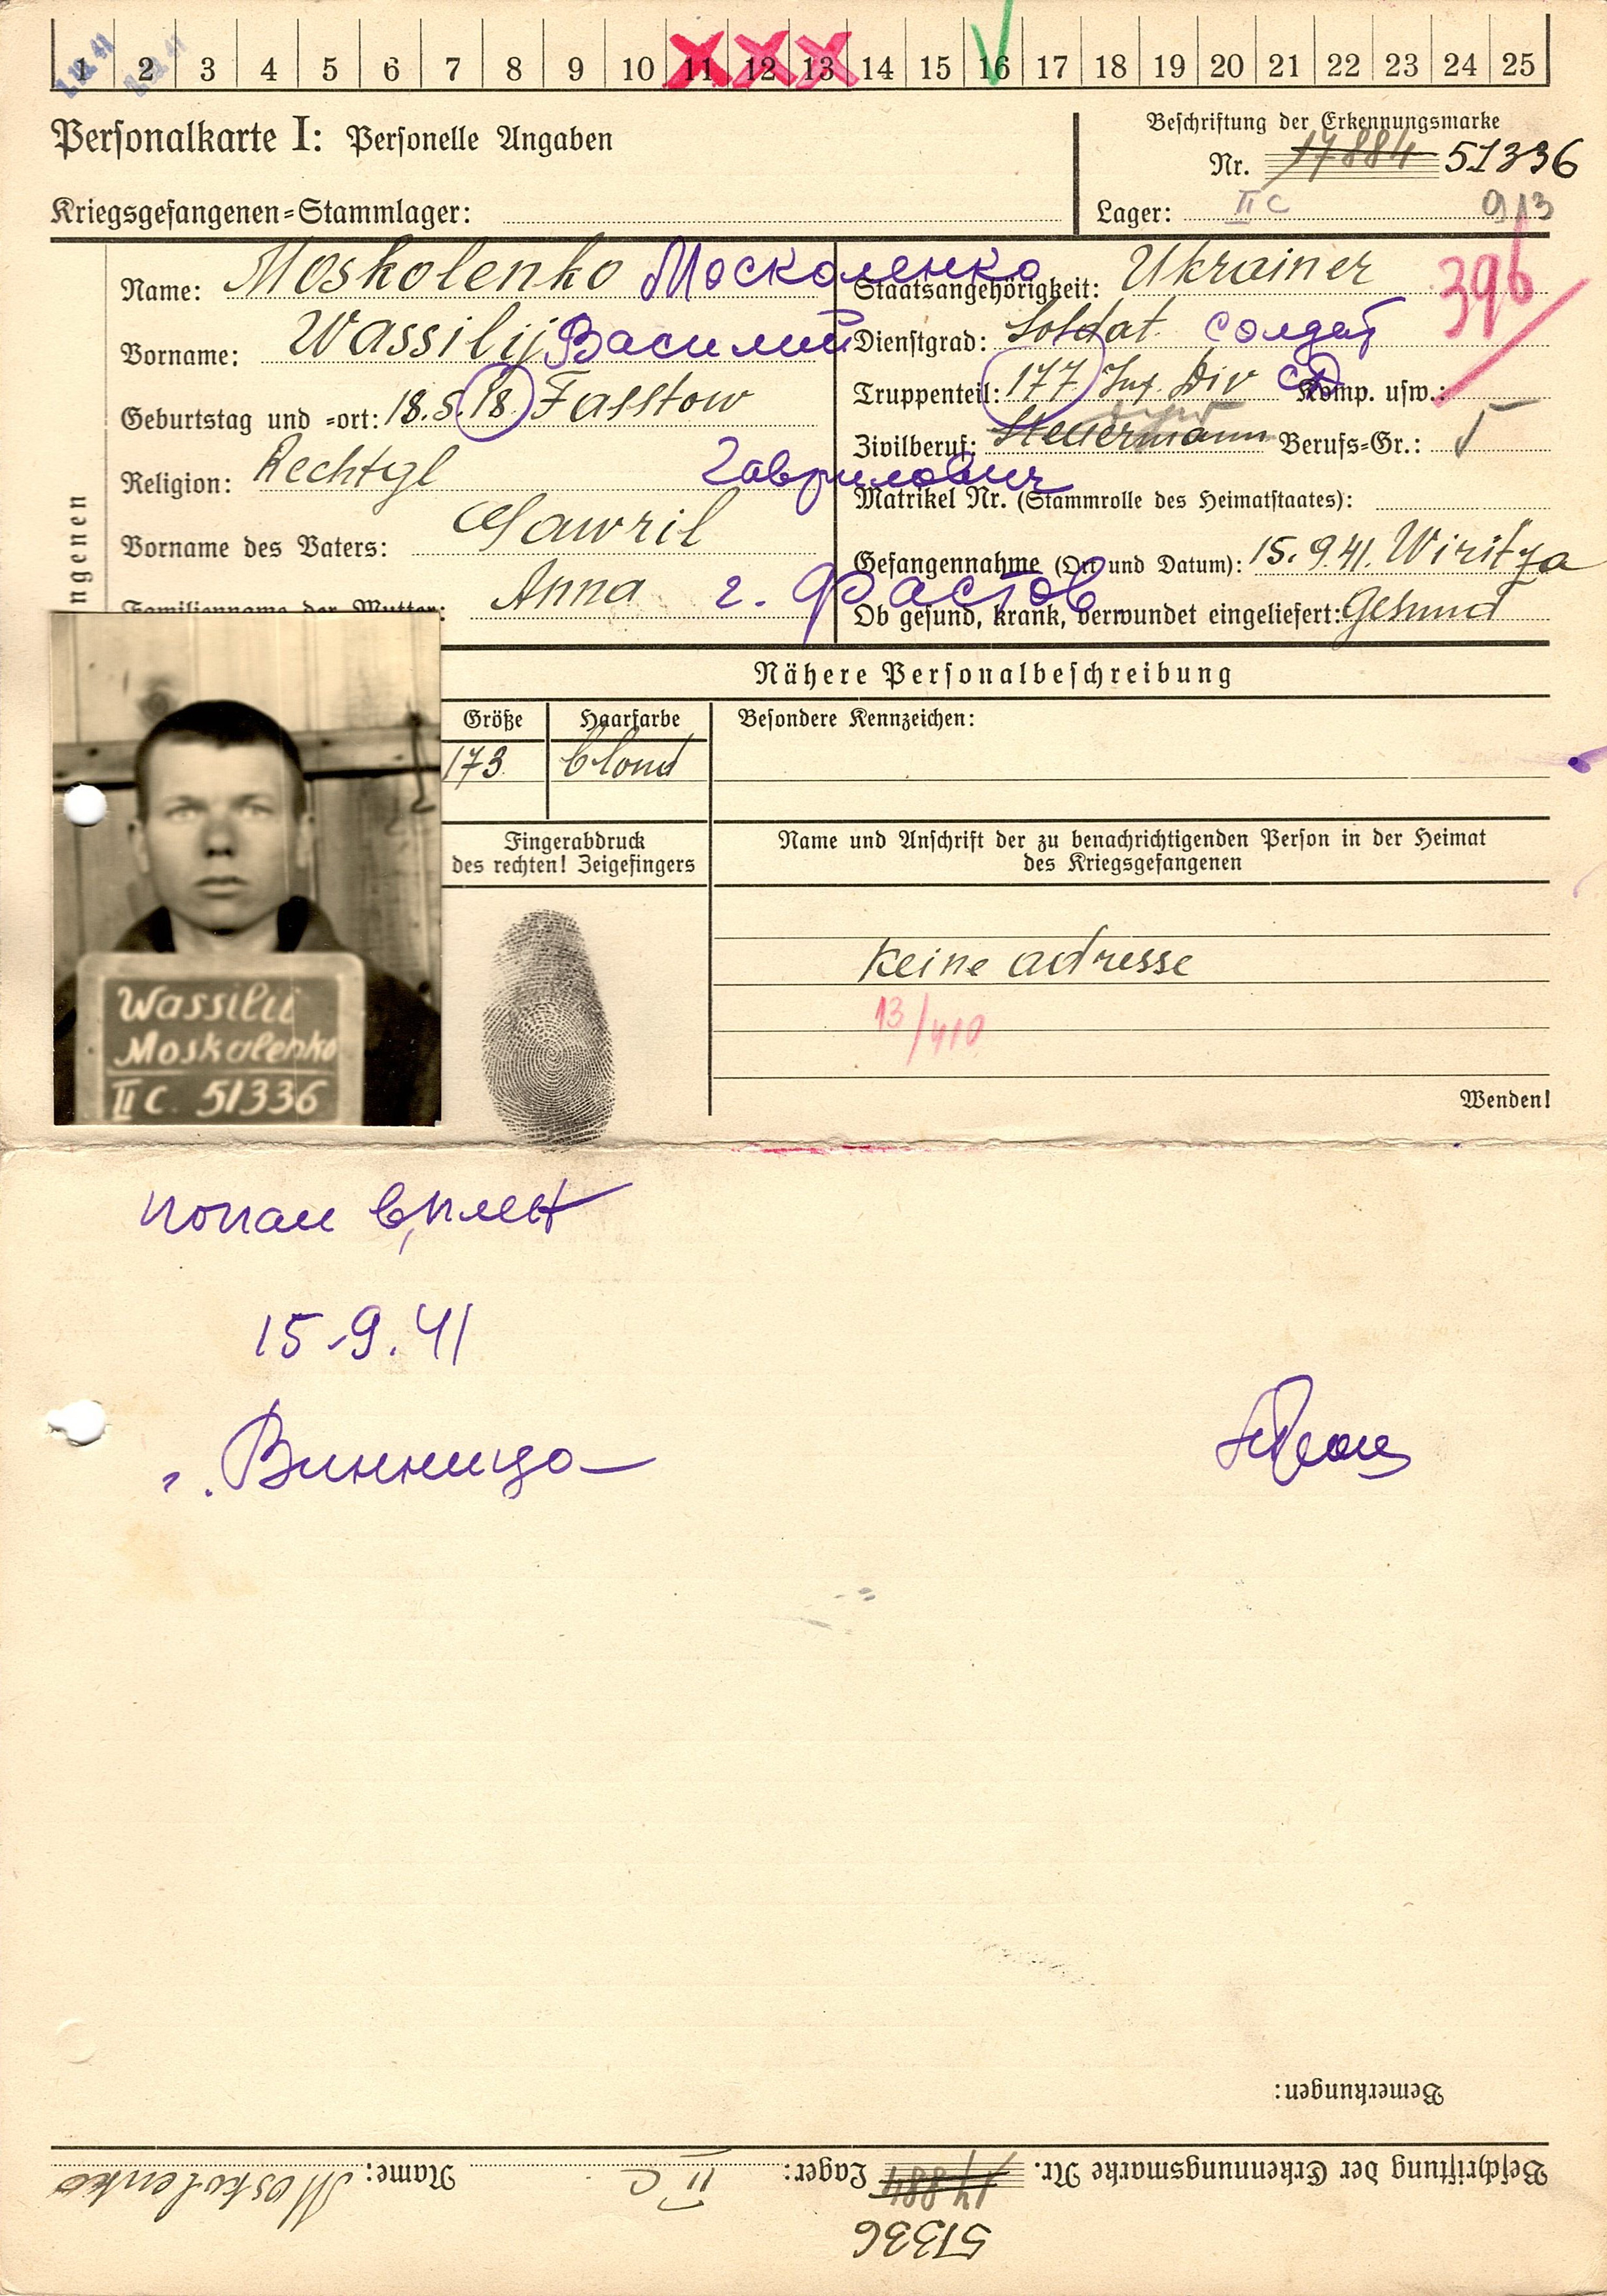 1 2 3 4 5 6 7 8 9 10 11 12 13 14 15 16 17 18 19 20 21 22 23 24 25
Personalkarte I: Personelle Angaben
Beschriftung der Erkennungsmarke
Nr. 17884 51336
Kriegsgefangenen-Stammlager:
Lager: II C 913
Name: Moskolenko Москаленко
Vorname: Wassilij Василий
Geburtstag und -ort: 18.5.18. Fasstow
Religion: Rechtgl
Vorname des Vaters: Gawril Гаврилович
Familienname der Mutter: Anna г. Фастов
ngenen
Staatsangehörigkeit: Ukrainer
396
Dienstgrad: Soldat солдат
Truppenteil: 177. Inf. Div сд Komp. usw.:
Zivilberuf: Steuermann Berufs-Gr.: 5
Matrikel Nr. (Stammrolle des Heimatstaates):
Gefangennahme (Ort und Datum): 15.9.41. Wiritza
Ob gesund, krank, verwundet eingeliefert: Gesund
Nähere Personalbeschreibung
Größe Haarfarbe Besondere Kennzeichen:
173 blond
Fingerabdruck
des rechten! Zeigefingers
Name und Anschrift der zu benachrichtigenden Person in der Heimat
des Kriegsgefangenen
Keine adresse
13/410
Wenden!
Wassilii
Moskalenko
II C. 51336
попал в плен
15.9.41
г. Винница
Bemerkungen:
Beschriftung der Erkennungsmarke Nr. 17884 Lager: II C Name: Moskolenko
51336